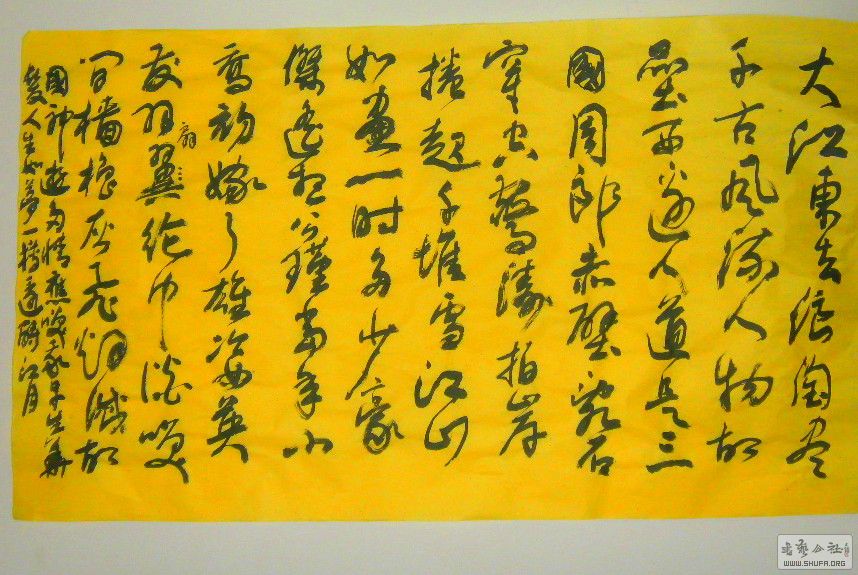 大江東去浪淘尽
千古風流人物故
壘西边人道是三
國周郎赤壁亂石
穿空驚濤拍岸
捲起千堆雪江山
如畫一时多少豪
傑遙想公瑾當年小
喬初嫁了雄姿英
发羽翼纶巾談笑
扇
间檣櫓灰飛烟滅故
國神遊多情應笑我早生華
髮人生如夢一樽還酹江月
书艺公社
WWW.SHUFA.ORG